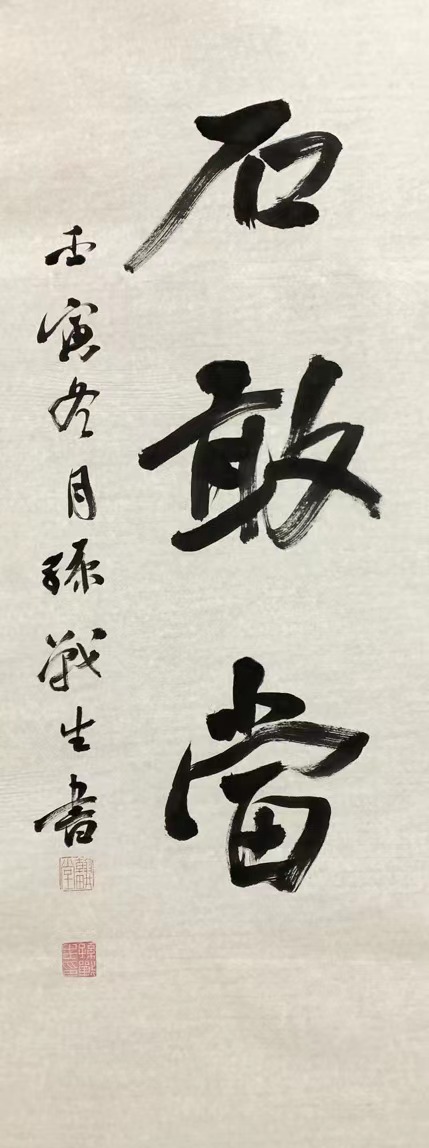 石敢當
壬寅冬月孫戰生書